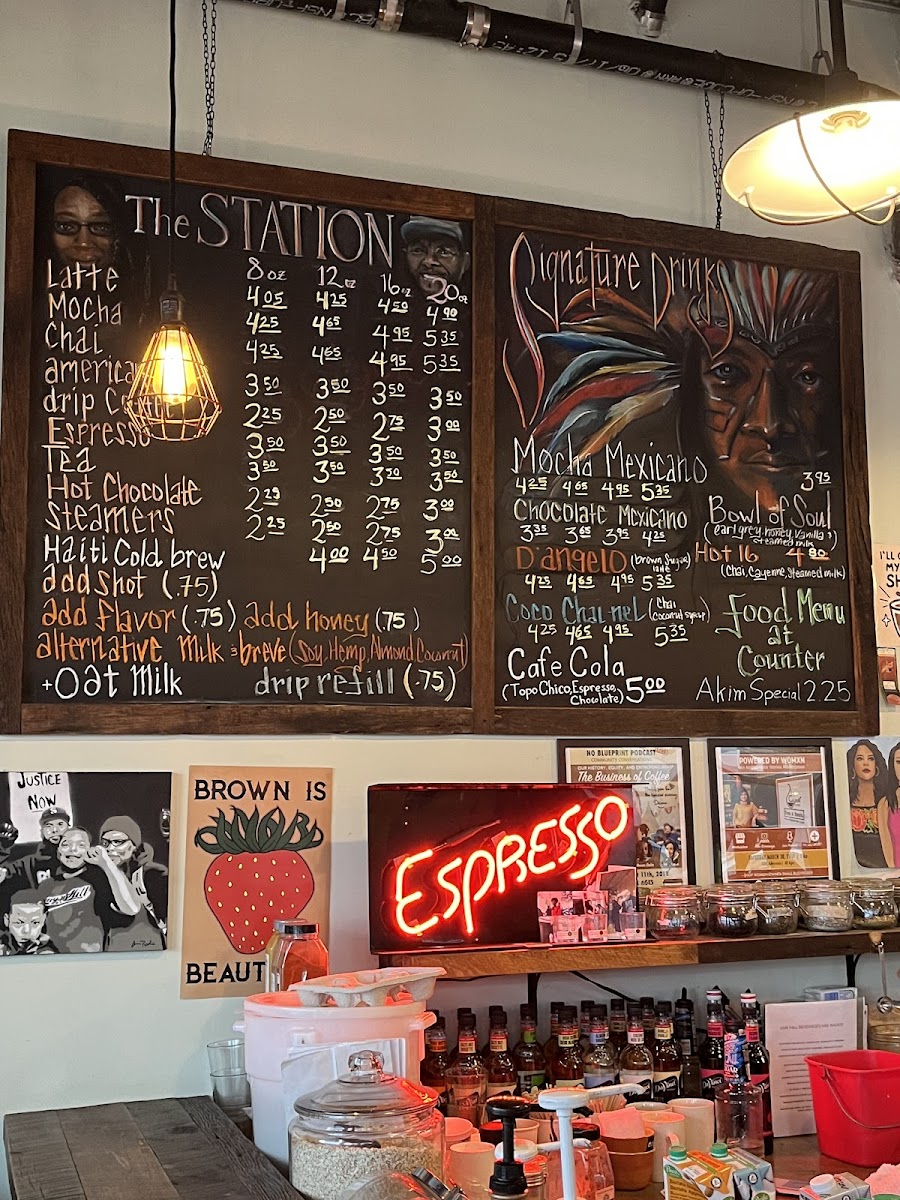 The STATION
8oz 12oz 16oz 20oz
Latte 4.05 4.25 4.50 4.90
Mocha 4.25 4.65 4.95 5.35
Chai 4.25 4.65 4.95 5.35
america 3.50 3.50 3.50 3.50
drip 2.25 2.50 2.75 3.00
Espresso 3.50 3.50 3.50 3.50
Tea 3.50 3.50 3.50
Hot Chocolate 2.25 2.50 2.75 3.00
Steamers 2.25 2.50 2.75 3.00
Haiti Cold brew 4.00 4.50 5.00
add shot (.75)
add flavor (.75) add honey (.75)
alternative milk & breve (Soy, Hemp, Almond Coconut)
+Oat Milk drip refill (.75)
Signature Drinks
Mocha Mexicano
4.25 4.65 4.95 5.35
Chocolate Mexicano
3.35 3.65 3.95 4.25
D'angelo (brown Sugar latte)
4.25 4.65 4.95 5.35
Coco Chai-nel (Chai, coconut syrup)
4.25 4.65 4.95 5.35
Cafe Cola
(Topo Chico, Espresso, Chocolate) 5.00
3.95
Bowl of Soul
(earl grey, honey, vanilla & steamed milk)
Hot 16 4.80
(Chai, Cayenne, Steamed milk)
Food Menu
at
Counter
Akim Special 2.25
JUSTICE
NOW
BROWN IS
BEAUT
ESPRESSO
NO BLUEPRINT PODCAST
The Business of Coffee
POWERED BY WOMXN
DaVinci